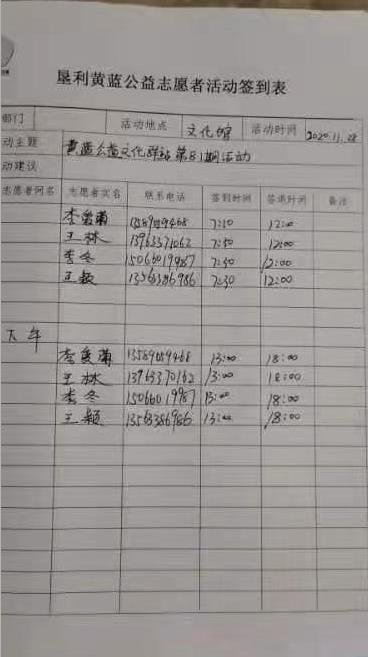 垦利黄蓝公益志愿者活动签到表
部门 活动地点 文化馆 活动时间 2020.11.28
动主题 黄蓝公益文化驿站第81期活动
动建议
志愿者网名 志愿者实名 联系电话 签到时间 签退时间 备注
李爱菊 13589089468 7:30 12:00
王林 13963371062 7:30 12:00
李冬 15066019987 7:30 12:00
王颖 13563386986 7:30 12:00
下午
李爱菊 13589089468 13:00 18:00
王林 13963370162 13:00 18:00
李冬 15066019987 13:00 18:00
王颖 13563386986 13:00 18:00